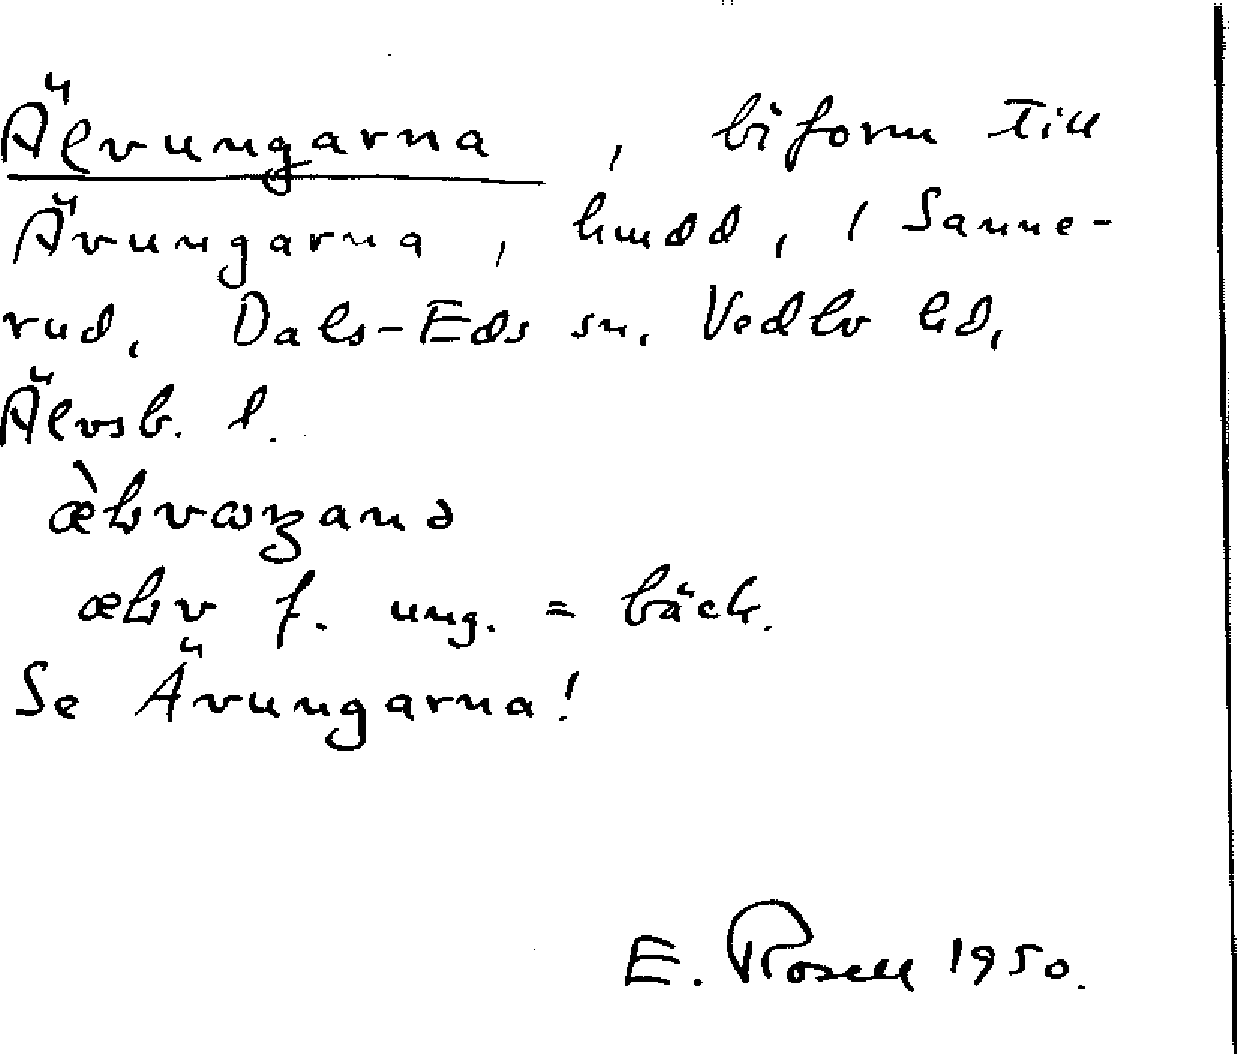 Älvungarna, biform till
Ävungarna, hmdd, i Sanne-
rud, Dals-Eds sn, Vedbo hd,
Älvsb. l.
älv f. ung. = bäck.
Se Ävungarna!
E. Rosell 1950.